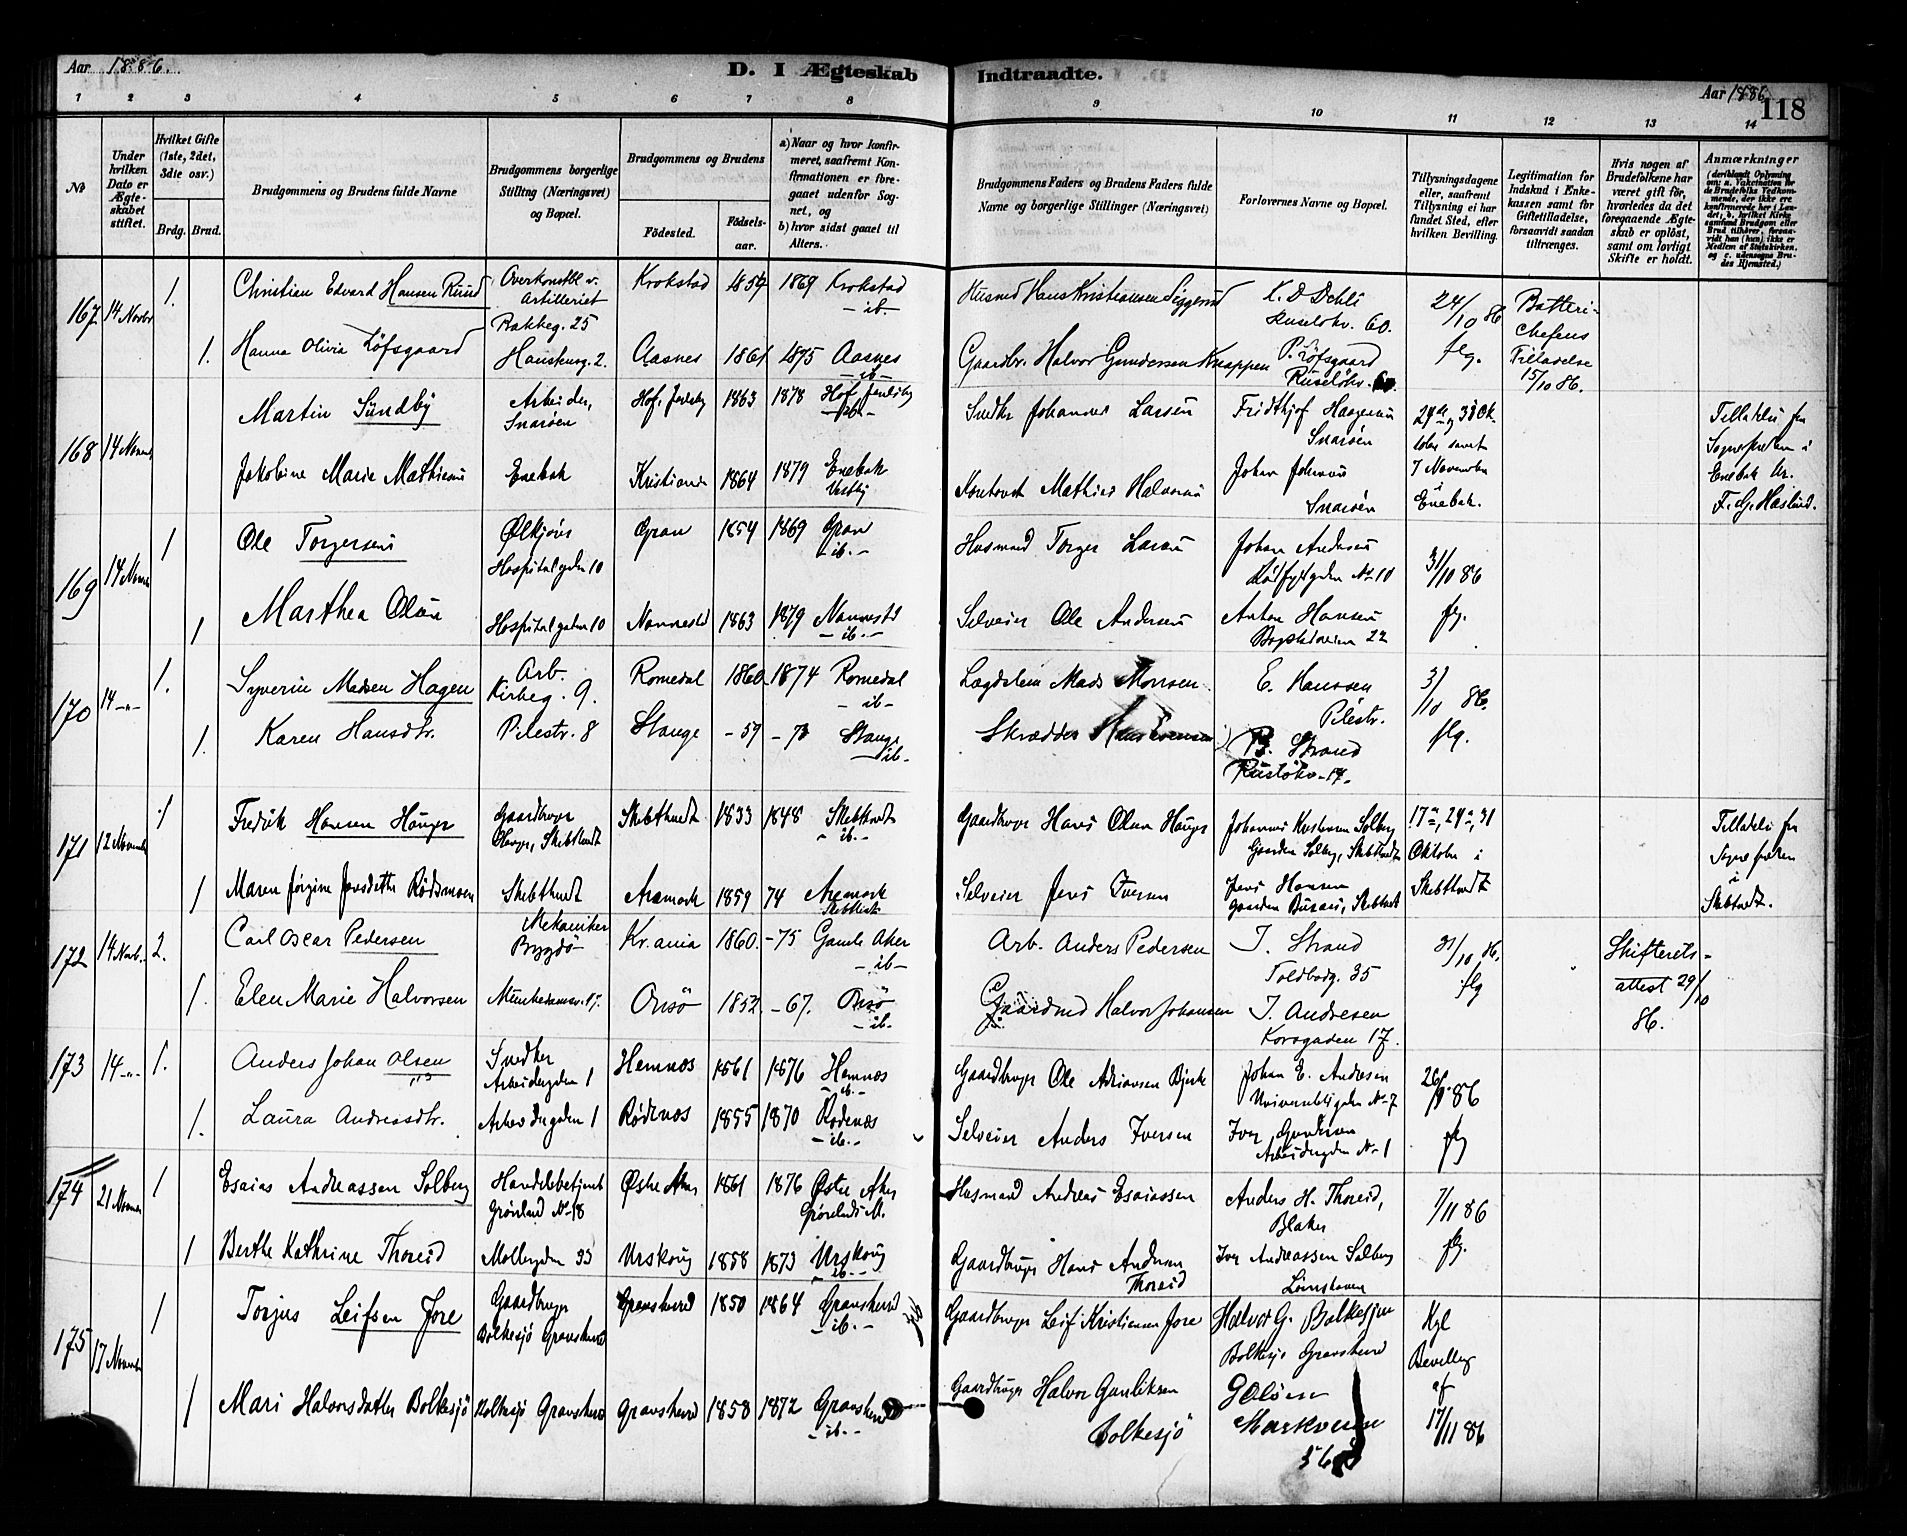 Aar 1886.
D. I Ægteskab Indtraadte.
Aar 1886
118
1 2 3 4 5 6 7 8 9 10 11 12 13 14
No
Under hvilken Dato er Ægteskabet stiftet.
Hvilket Gifte (1ste, 2det, 3die osv.)
Brdg. Brud.
Brudgommens og Brudens fulde Navne
Brudgommens borgerlige Stilling (Næringsvei) og Bopæl.
Brudgommens og Brudens
Födested.
Födsels-aar.
a) Naar og hvor konfirmeret, saafremt Konfirmationen er foregaaet udenfor Sognet, og
b) hvor sidst gaaet til Alters.
Brudgommens Faders og Brudens Faders fulde Navne og borgerlige Stillinger (Næringsvei)
Forlovernes Navne og Bopæl.
Tillysningsdagene eller, saafremt Tillysning ei har fundet Sted, efter hvilken Bevilling.
Legitimation for Indskud i Enkekassen samt for Giftetilladelse, forsaavidt saadan tiltrænges.
Hvis nogen af Brudefolkene har været gift för, hvorledes da det foregaaende Ægteskab er oplöst, samt om lovligt Skifte er holdt.
Anmærkninger
167 14 Novbr 1. Christian Edvard Hansen Ruud Overkonstbl v. Artilleriet Bakkeg. 25 Krokstad 1859 1869 Krokstad -ib- Husmd Hans Kristiansen Siggerud K. D Dehli Ruselökv. 60. 24/10 86 flg. Batterichefens Tilladelse 15/10 86.
1. Hanna Olivia Löfsgaard Hauskeng. 2. Aasnes 1861 1875 Aasnes -ib- Gaardbr. Halvor Gundersen Knappen P. Löfsgaard Ruselökv. 60
168 14 Novemb Martin Sundby Arbeider, Snaröen Hof, Jarlsby 1863 1878 Hof Jarlsby -ib- Snedker Johannes Larsen Fridthjof Haagensen Snaröen 24de og 31 Ok. tober samt 7 November i Enebak. Tilladelse fra Sognepresten i Enebak Hr. F. G. Haslund.
Jakobine Marie Mathisen Enebak Kristiania 1864 1879 Enebak Vestby Mathias Halvorsen Johan Johansen Snaröen
169 14 Novem 1 Ole Torgersen Ølkjører Hospitalsgaden 10 Gran 1854 1869 Gran -ib.- Husmand Torger Larsen Johan Andersen No 10 31/10 86 flg.
1 Marthea Olsen Hospitalsgaden 10 Nannestad 1863 1879 Nannestad -ib.- Selveier Ole Andersen Anton Hansen Bogstadveien 22
170 14 -"- 1. Syverin Madsen Hagen Arb. Kirkeg. 9. Romedal 1860 1874 Romedal -ib- Lægdslem Mads Monsen E. Hanssen Pilestr. 31/10 86. flg.
1. Karen Hansdtr. Pilestr. 8 Stange -59 -73 Stange -ib- Skrædder B. Strand Ruslökv. 17.
171 12 Novemb 1 Fredrik Hansen Hauger Gaardbruger Hauger, Skibthvedt Skibthvedt 1833 1848 Skibthvedt -ib.- Gaardbruger Hans Olsen Hauger Johannes Kristensen Solberg Gaarden Solberg, Skibthvedt 17de, 24de, 31 Oktober i Skibthvedt Tilladelse fra Sognepresten i Skibthvedt.
1 Maren Jørgine Jensdatter Rödsmoen Skibthvedt Aremark 1859 74 Aremark Skibthvedt Selveier Jens Iversen Jens Hansen Gaarden Skibthvedt
172 14 Novb. 2. Carl Oscar Pedersen Mekaniker Bygdö Kr.ania 1860. -75 Gamle Aker -ib- Arb. Anders Pedersen J. Strand Toldbodg. 35 31/10 86. flg Skifterets-attest 29/10 86.
1. Elen Marie Halvorsen Munkedamsv. 17. Onsö 1852. -67. Onsö -ib. Gaardmd Halvor Johansen J. Andresen Korsgaden 17.
173 14 -"- 1. Anders Johan Olsen Snedker Arbeidergaden 1 Hemnæs 1861 1876 Hemnæs -ib.- Gaardbruger Ole Adriansen Bjerke Johan E. Andresen Universitetsgaden No 7 26/9 86 flg
1. Laura Andreasdtr. Arbeidergaden 1 Rödenæs 1855 1870 Rödenæs -ib.- Selveier Anders Iversen Iver Gundersen Arbeidergaden No 1
174 21 Novem 1 Esaias Andreassen Solberg Handelsbetjent Grönland No 18 Østre Aker 1861 1876 Østre Aker Grönlands M. Husmand Andreas Esaiassen Anders H. Thoreid, Blaker 7/11 86 flg.
1 Berthe Kathrine Thoreid Mollergaden 33 Urskoug 1858 1873 Urskoug -ib.- Gaardbruger Hans Andersen Thoreid Iver Andreassen Solberg Lörenskoven
175 17 Novemb 1 Torjus Leifsen Jore Gaardbruger Bolkesjö Gransherred Gransherred 1850 1864 Gransherred -ib.- Gaardbruger Leif Kristiansen Jore Halvor G. Bolkesjöe Bolkesjö Gransherred Kgl Bevilling af 17/11 86
1 Mari Halvorsdatter Bolkesjö Bolkesjö Gransherred Gransherred 1858 1872 Gransherred -ib.- Gaardbruger Halvor Gunleiksen Bolkesjö G Olsen Markveien